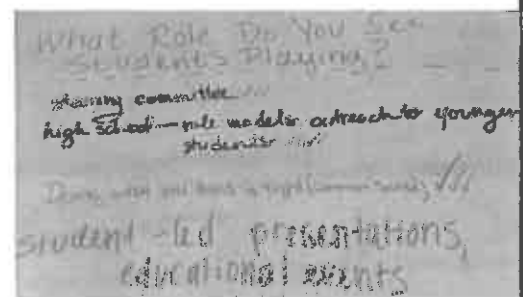 What Role Do You See
Students Playing?
steering committee
high school — role models outreach to younger
students
Doing what
student-led presentations,
educational events